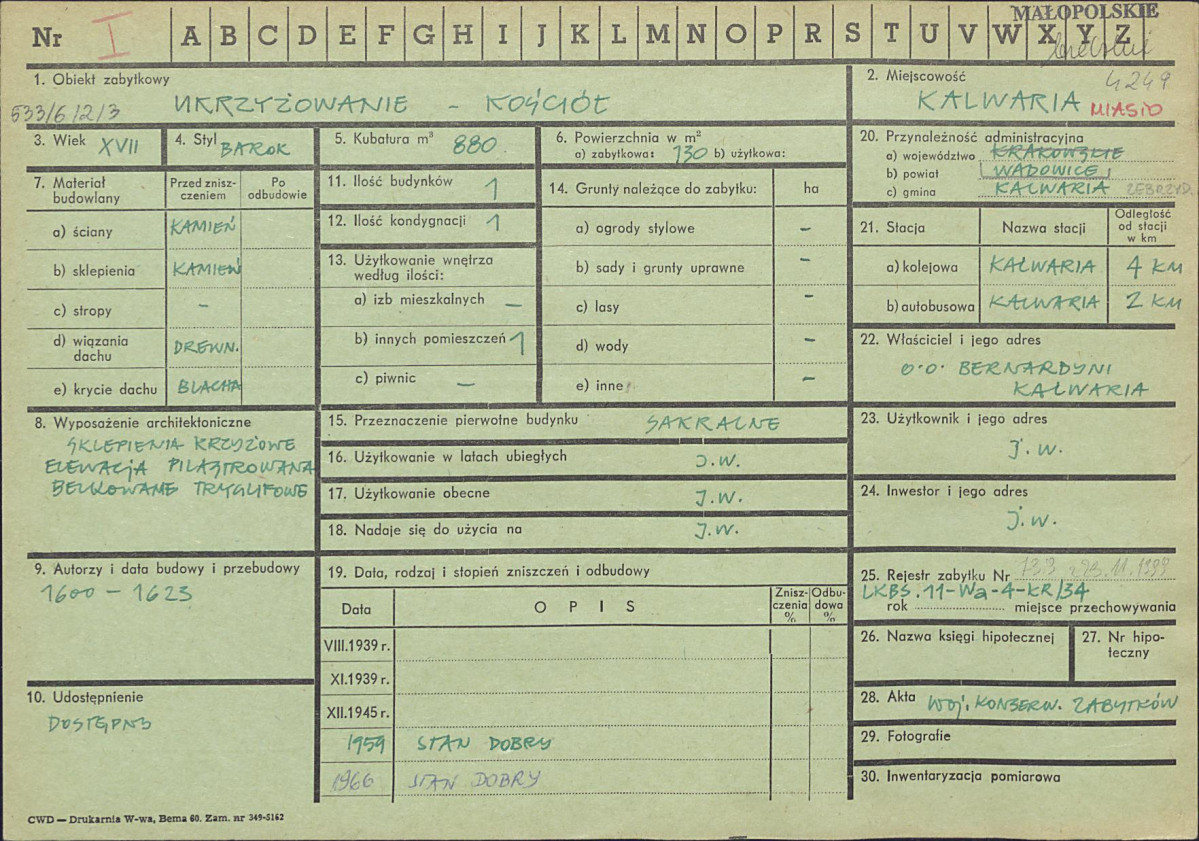 MAŁOPOLSKIE
Nr I A B C D E F G H I J K L M N O P R S T U V W X Y Z
4249
1. Obiekt zabytkowy
533/6/2/3 UKRZYŻOWANIE – KOŚCIÓŁ
2. Miejscowość
KALWARIA MIASTO
3. Wiek XVII
4. Styl BAROK
5. Kubatura m³ 880
6. Powierzchnia w m²
a) zabytkowa: 130 b) użytkowa:
7. Materiał budowlany
Przed zniszczeniem
Po odbudowie
a) ściany KAMIEŃ
b) sklepienia KAMIEŃ
c) stropy –
d) wiązania dachu DREWN.
e) krycie dachu BLACHA
8. Wyposażenie architektoniczne
SKLEPIENIA KRZYŻOWE
ELEWACJA PILASTROWANA
BELKOWANIE TRYGLIFOWE
9. Autorzy i data budowy i przebudowy
1600 – 1623
10. Udostępnienie
DOSTĘPNY
11. Ilość budynków 1
12. Ilość kondygnacji 1
13. Użytkowanie wnętrza
według ilości:
a) izb mieszkalnych –
b) innych pomieszczeń 1
c) piwnic –
14. Grunty należące do zabytku: ha
a) ogrody stylowe –
b) sady i grunty uprawne –
c) lasy –
d) wody –
e) inne –
15. Przeznaczenie pierwotne budynku SAKRALNE
16. Użytkowanie w latach ubiegłych J.W.
17. Użytkowanie obecne J.W.
18. Nadaje się do użycia na J.W.
19. Data, rodzaj i stopień zniszczeń i odbudowy
Data OPIS Zniszczenia % Odbudowa %
VIII.1939 r.
XI.1939 r.
XII.1945 r.
1959 STAN DOBRY
1966 STAN DOBRY
20. Przynależność administracyjna
a) województwo KRAKOWSKIE
b) powiat WADOWICE
c) gmina KALWARIA ZEBRZYD.
21. Stacja Nazwa stacji Odległość od stacji w km
a) kolejowa KALWARIA 4 KM
b) autobusowa KALWARIA 2 KM
22. Właściciel i jego adres
O.O. BERNARDYNI
KALWARIA
23. Użytkownik i jego adres
J.W.
24. Inwestor i jego adres
J.W.
25. Rejestr zabytku Nr
LKBS.11-Wa-4-KR/34
rok miejsce przechowywania
26. Nazwa księgi hipotecznej
27. Nr hipoteczny
28. Akta WOJ. KONSERW. ZABYTKÓW
29. Fotografie
30. Inwentaryzacja pomiarowa
CWD — Drukarnia W-wa, Bema 60. Zam. nr 349-5162